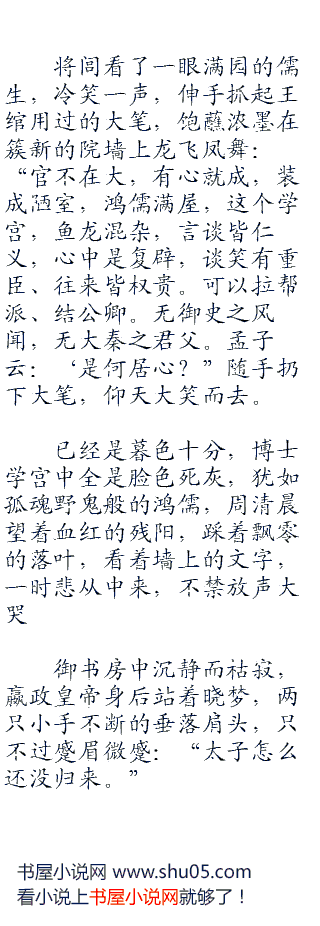 将闾看了一眼满园的儒
生，冷笑一声，伸手抓起王
绾用过的大笔，饱蘸浓墨在
簇新的院墙上龙飞凤舞：
“官不在大，有心就成，装
成陋室，鸿儒满屋，这个学
宫，鱼龙混杂，言谈皆仁
义，心中是复辟，谈笑有重
臣、往来皆权贵。可以拉帮
派、结公卿。无御史之风
闻，无大秦之君父。孟子
云：‘是何居心？”随手扔
下大笔，仰天大笑而去。
已经是暮色十分，博士
学宫中全是脸色死灰，犹如
孤魂野鬼般的鸿儒，周清晨
望着血红的残阳，踩着飘零
的落叶，看着墙上的文字，
一时悲从中来，不禁放声大
哭
御书房中沉静而祜寂，
嬴政皇帝身后站着晓梦，两
只小手不断的垂落肩头，只
不过蹙眉微蹙：“太子怎么
还没归来。”
书屋小说网 www.shu05.com
看小说上书屋小说网就够了！